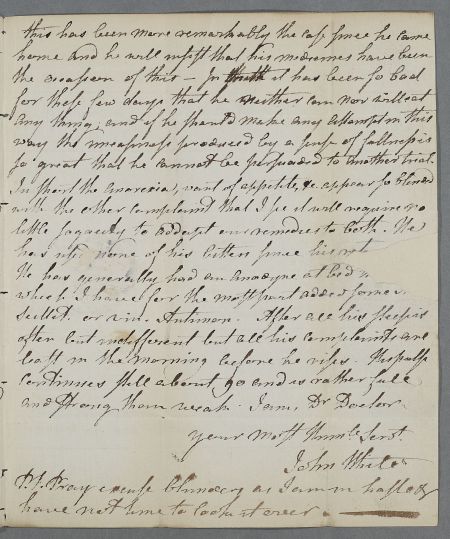 this has been more remarkably the case since he came
home and he will insist that his medicines have been
the occasion of this – In truth it has been so bad
for these few days that he neither can nor will eat
any thing, and if he should make any attempt in this
way the uneasiness produced by a sense of fullness is
so great that he cannot be persuaded to another trial.
In short the anorexia, want of appetite, &c. appear so blended
with the other complaint that I see it will require no
little sagacity to adapt our remedies to both. He
has used none of his bitters since his ret
He has generally had an anodyne at bed
which I have for the most part added some
or vin. Antimon. After all his sleep is
often but indifferent but all his complaints are
least in the morning before he rises. The pulse
continues still about 90 and is rather full
and strong than weak. I am, Dr Doctor
your most Humle Servt.
John White
P.S. Pray excuse blunders as I am in haste &
have not time to look it over.